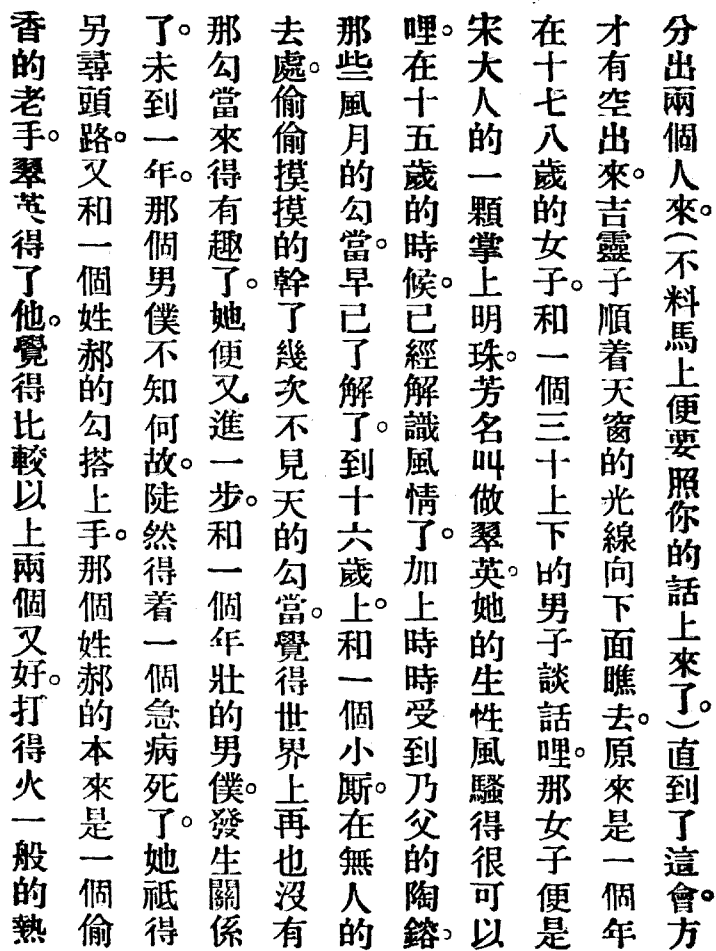 分出兩個人來。(不料馬上便要照你的話上來了。)直到了這會。方
才有空出來。吉靈子順着天窗的光線向下面瞧去。原來是一個年
在十七八歲的女子。和一個三十上下的男子談話哩。那女子便是
宋大人的一顆掌上明珠。芳名叫做翠英。她的生性風騷得很可以
哩。在十五歲的時候。已經解識風情了。加上時時受到乃父的陶鎔。
那些風月的勾當。早已了解了。到十六歲上。和一個小厮。在無人的
去處。偷偷摸摸的幹了幾次不見天的勾當。覺得世界上再也沒有
那勾當來得有趣了。她便又進一步。和一個年壯的男僕。發生關係
了。未到一年。那個男僕不知何故。陡然得着一個急病死了。她祗得
另尋頭路。又和一個姓郝的勾搭上手。那個姓郝的本來是一個偷
香的老手。翠英得了他。覺得比較以上兩個又好。打得火一般的熱